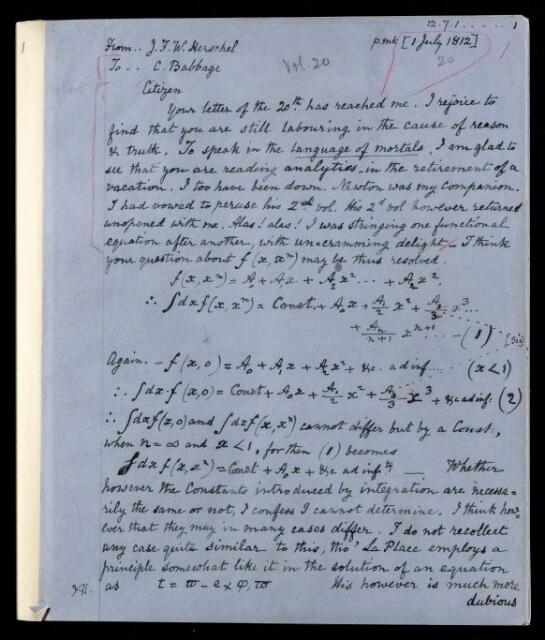 12.7.1.....1
From.. J.F.W. Herschel
pmk [1 July 1812]
To.. C. Babbage
Vol. 20
20
Citizen
Your letter of the 20th has reached me. I rejoice to
find that you are still labouring in the cause of reason
& truth. To speak in the language of mortals, I am glad to
see that you are reading analytics in the retirement of a
vacation. I too have been down. Newton was my companion.
I had vowed to peruse his 2d vol. His 2d vol however returned
unopened with me. Alas! alas! I was stringing one functional
equation after another, with un-cramming delight – I think
your question about f(x, xⁿ) may be thus resolved.
f(x, xⁿ) = A₀ + A₁x + A₂x² ... + Aₙxⁿ.
∴ ∫dx f(x, xⁿ) = Const. + A₀x + A₁/2 x² + A₂/3 x³...
+ Aₙ/n+1 xⁿ⁺¹ ... – (1) [sic]
Again. – f(x, 0) = A₀ + A₁x + A₂x² + &c. ad inf... (x<1)
∴ ∫dx f(x, 0) = Const + A₀x + A₁/2 x² + A₂/3 x³ + &c ad inf. (2)
∴ ∫dx f(x, 0) and ∫dx f(x, xⁿ) cannot differ but by a Const.,
when n = ∞ and x<1, for then (1) becomes
∫dx f(x, xⁿ) = Const + A₀x + &c ad infty. — Whether
however the Constants introduced by integration are necessa=
rily the same or not, I confess I cannot determine. I think how=
ever that they may in many cases differ. I do not recollect
any case quite similar to this, tho' La Place employs a
principle somewhat like it in the solution of an equation
as t = ϖ – e × φ, ϖ His however is much more
dubious